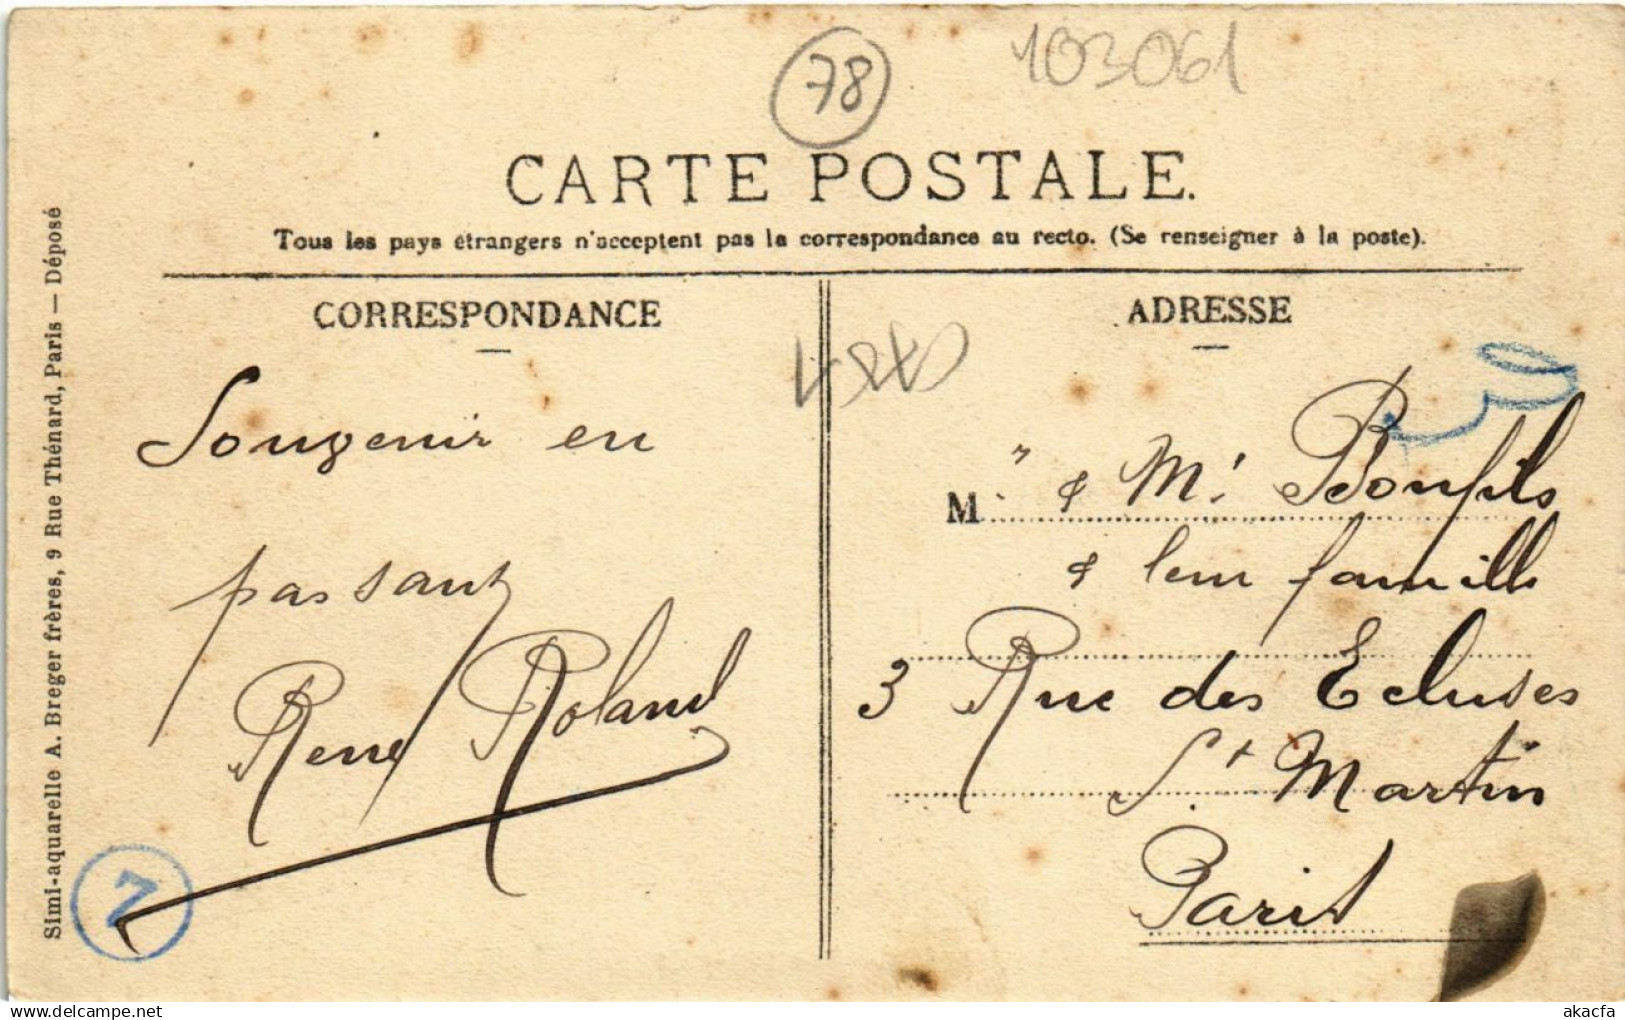 78
103061
CARTE POSTALE.
Tous les pays étrangers n'acceptent pas la correspondance au recto. (Se renseigner à la poste).
CORRESPONDANCE
Souvenir en
passant
René Roland
ADRESSE
M. " & Mr Bonfils
& leur famille
3 Rue des Ecluses
St Martin
Paris
Simi-aquarelle A. Breger frères, 9 Rue Thénard, Paris — Déposé
Z
akacfa